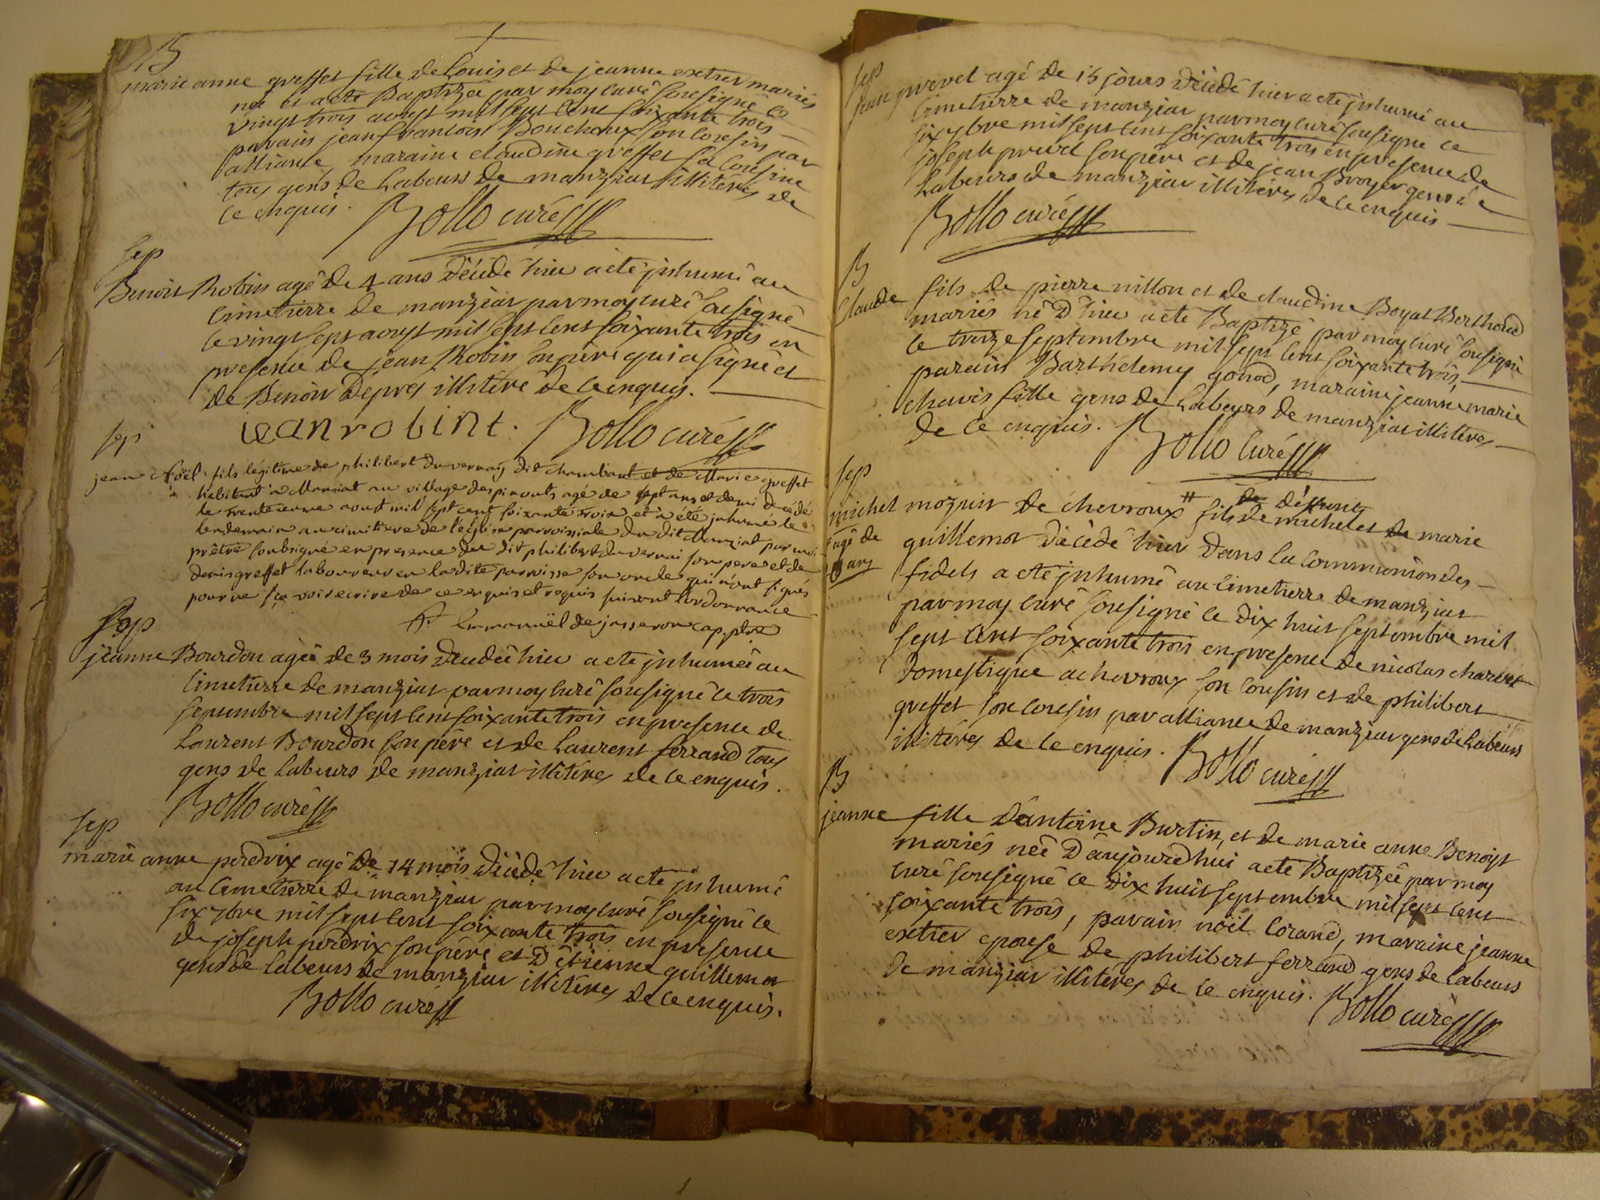 B
marie anne greffet fille de Louis et de jeanne extrer mariés
née et a eté Baptizée par moy curé sousigné ce
vingt trois aoust mil sept cent soixante trois
parain jean francois Bouchoux son cosin par
alliance maraine claudine greffet sa cousine
tous gens de Labeurs de manziat illiterés de
ce enquis. Bollo curé
sep
Benoit Robin agé de 4 ans décédé hier a eté inhumé au
cimetierre de manziat par moy curé sousigné
ce vingt sept aoust mil sept cent soixante trois en
presence de jean Robin son pere qui a signé et
de Benoit Depres illiteré de ce enquis.
jean robint. Bollo curé
sep
jean noël fils légitime de philibert duvernay dit chambard et de Marie greffet
habitant a Manziat au village des pinouts agé de sept ans et demi decedé
le trente aoust mil sept cent soixante trois et a été inhumé le
lendemain au cimitiere de l'eglise parroissiale du dit Manziat par moi
prêtre soubsigné en presence du dit philibert duvernai son pere et de
denis greffet laboureur en la dite parroisse son oncle qui n'ont signés
pour ne sçavoir ecrire de ce enquis et requis suivant l'ordonnance
fr. Emmanuël de jasseron cap. ptre
sep
jeanne Bourdon agée de 3 mois décédée hier a eté inhumée au
cimetierre de manziat par moy curé sousigné ce trois
septembre mil sept cent soixante trois en presence de
Laurent Bourdon son père et de Laurent ferrand tous
gens de Labeurs de manziat illiterés de ce enquis.
Bollo curé
sep
marie anne perdrix agé de 14 mois décédé hier a eté inhumé
au cimetierre de manziat par moy curé sousigné ce
six 7bre mil sept cent soixante trois en presence
de joseph perdrix son père et d'etienne guillemot
gens de Labeurs de manziat illiterés de ce enquis.
Bollo curé
sep
jean prevel agé de 15 jours décédé hier a eté inhumé au
cimetierre de manziat par moy curé sousigné ce
six 7bre mil sept cent soixante trois en presence de
joseph prevel son père et de jean Broyer gens de
Labeurs de manziat illiterés de ce enquis
Bollo curé
B
Claude fils de pierre nillon et de claudine Boyat Berthoud
mariés né d'hier a eté Baptizé par moy curé sousigné
ce treize septembre mil sept cent soixante trois,
parain Barthelemy gonod, maraine jeanne marie
chavis fille gens de Labeurs de manziat illiterés
de ce enquis. Bollo curé
sep
michel mozuir de chevroux # fils de michel et de marie
de défunts
agé de
ans
guillemot décédé hier dans la communion des
fidels a eté inhumé au cimetierre de manziat
par moy curé sousigné ce dix huit septembre mil
sept cent soixante trois en presence de nicolas
domestique a chevroux son cousin et de philibert
greffet son cousin par alliance de manziat gens de Labeurs
illiterés de ce enquis. Bollo curé
B
jeanne fille d'antoine Burtin, et de marie anne Benoist
mariés née d'aujourd'hui a eté Baptizée par moy
curé sousigné ce dix huit septembre mil sept cent
soixante trois, parain noël Corand, maraine jeanne
extrer epouse de philibert ferrand gens de Labeurs
de manziat illiterés de ce enquis. Bollo curé